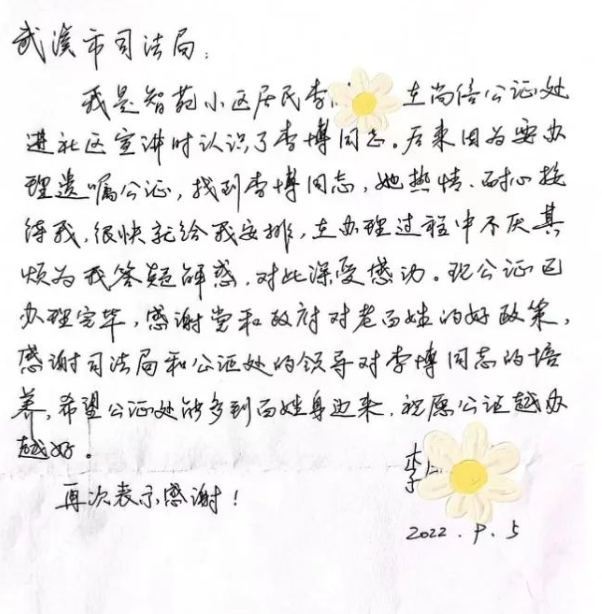 武汉市司法局：
我是智苑小区居民李 在尚信公证处
进社区宣讲时认识了李博同志。后来因为要办
理遗嘱公证，找到李博同志，她热情、耐心接
待我，很快就给我安排，在办理过程中不厌其
烦为我答疑解惑，对此深受感动。现公证已
办理完毕，感谢党和政府对老百姓的好政策，
感谢司法局和公证处的领导对李博同志的培
养，希望公证处能多到百姓身边来，祝愿公证越办
越好。
李
再次表示感谢！
2022.9.5